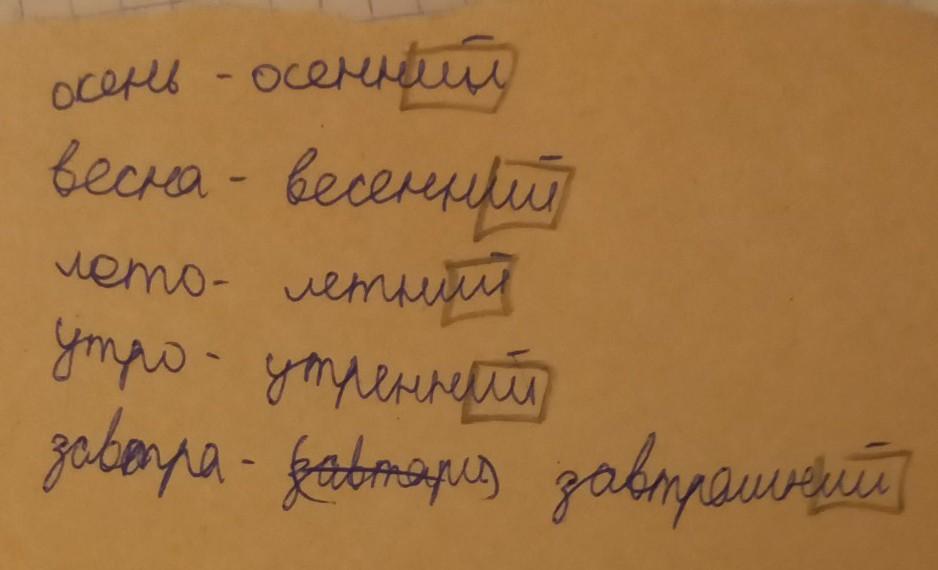 осень - осенний
весна - весенний
лето - летний
утро - утренний
завтра - завтрашний